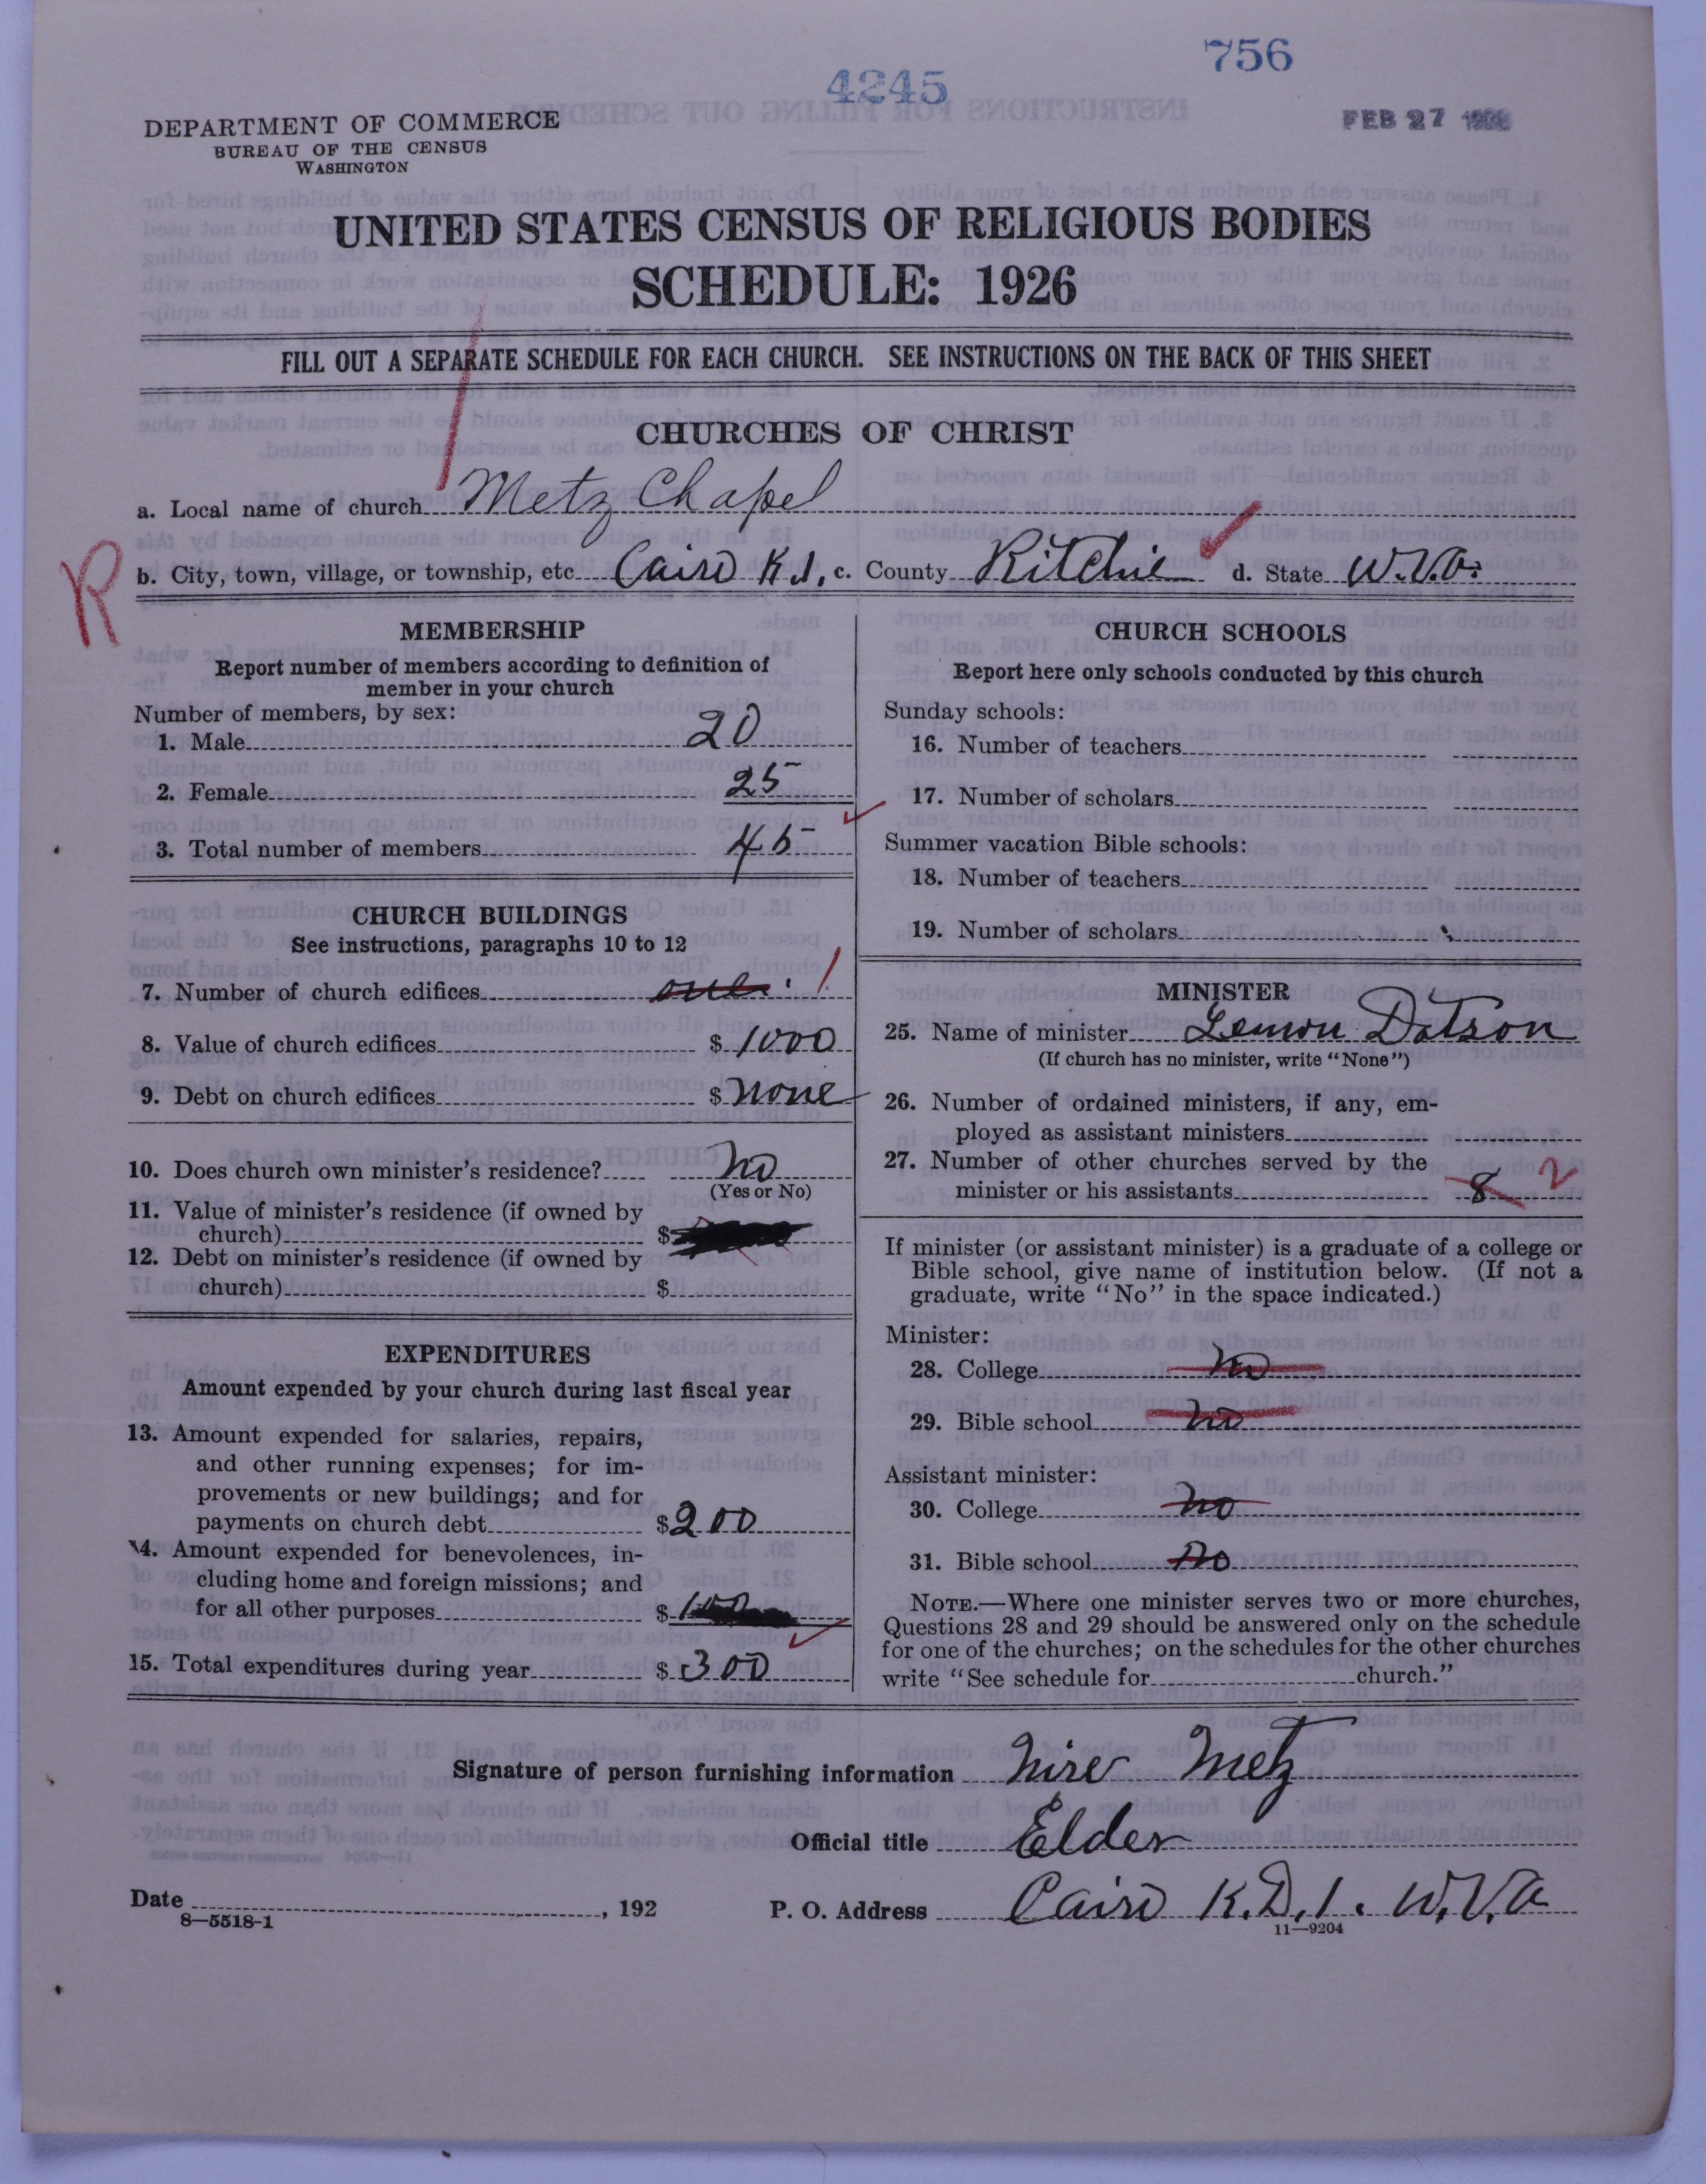 756
4245
FEB 27
DEPARTMENT OF COMMERCE
BUREAU OF THE CENSUS
WASHINGTON
UNITED STATES CENSUS OF RELIGIOUS BODIES
SCHEDULE: 1926
FILL OUT A SEPARATE SCHEDULE FOR EACH CHURCH. SEE INSTRUCTIONS ON THE BACK OF THIS SHEET
CHURCHES OF CHRIST
a. Local name of church Metz Chapel
R b. City, town, village, or township, etc. Cairo c. County Ritchie d. State W.Va.
MEMBERSHIP
Report number of members according to definition of
member in your church
Number of members, by sex:
1. Male 20
2. Female 25
3. Total number of members 45
CHURCH BUILDINGS
See instructions, paragraphs 10 to 12
7. Number of church edifices one. 1
8. Value of church edifices $ 1000
9. Debt on church edifices $ none
10. Does church own minister's residence? no
(Yes or No)
11. Value of minister's residence (if owned by
church) $
12. Debt on minister's residence (if owned by
church) $
EXPENDITURES
Amount expended by your church during last fiscal year
13. Amount expended for salaries, repairs,
and other running expenses; for im-
provements or new buildings; and for
payments on church debt $ 200
14. Amount expended for benevolences, in-
cluding home and foreign missions; and
for all other purposes $ 100
15. Total expenditures during year $ 300
CHURCH SCHOOLS
Report here only schools conducted by this church
Sunday schools:
16. Number of teachers
17. Number of scholars
Summer vacation Bible schools:
18. Number of teachers
19. Number of scholars
MINISTER
25. Name of minister Lemon Dotson
(If church has no minister, write "None")
26. Number of ordained ministers, if any, em-
ployed as assistant ministers
27. Number of other churches served by the
minister or his assistants 8 2
If minister (or assistant minister) is a graduate of a college or
Bible school, give name of institution below. (If not a
graduate, write "No" in the space indicated.)
Minister:
28. College no
29. Bible school no
Assistant minister:
30. College no
31. Bible school no
NOTE.—Where one minister serves two or more churches,
Questions 28 and 29 should be answered only on the schedule
for one of the churches; on the schedules for the other churches
write "See schedule for church."
Signature of person furnishing information Metz
Official title Elder
Date , 192 P. O. Address Cairo R.D.1. W.Va
8—5518-1
11—9204